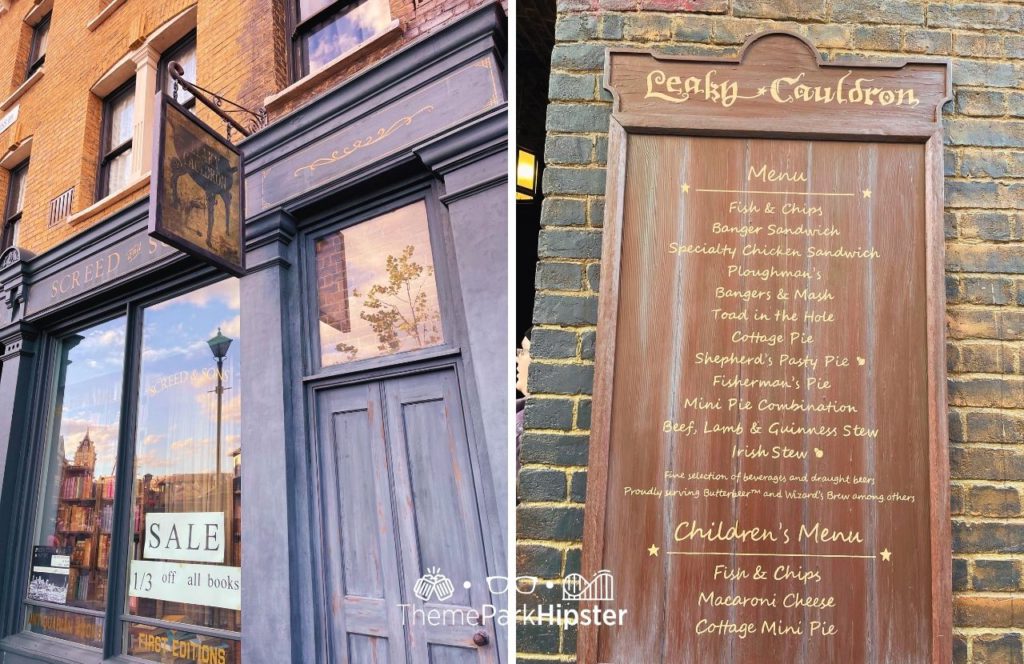 SCREED and SO
CAULDRON
SCREED & SONS
SALE
1/3 off all books
ANTIQUARIAN BOOKS
FIRST EDITIONS
Leaky Cauldron
Menu
Fish & Chips
Banger Sandwich
Specialty Chicken Sandwich
Ploughman's
Bangers & Mash
Toad in the Hole
Cottage Pie
Shepherd's Pasty Pie
Fisherman's Pie
Mini Pie Combination
Beef, Lamb & Guinness Stew
Irish Stew
Fine selection of beverages and draught beers
Proudly serving Butterbeer™ and Wizard's Brew among others
Children's Menu
Fish & Chips
Macaroni Cheese
Cottage Mini Pie
ThemeParkHipster